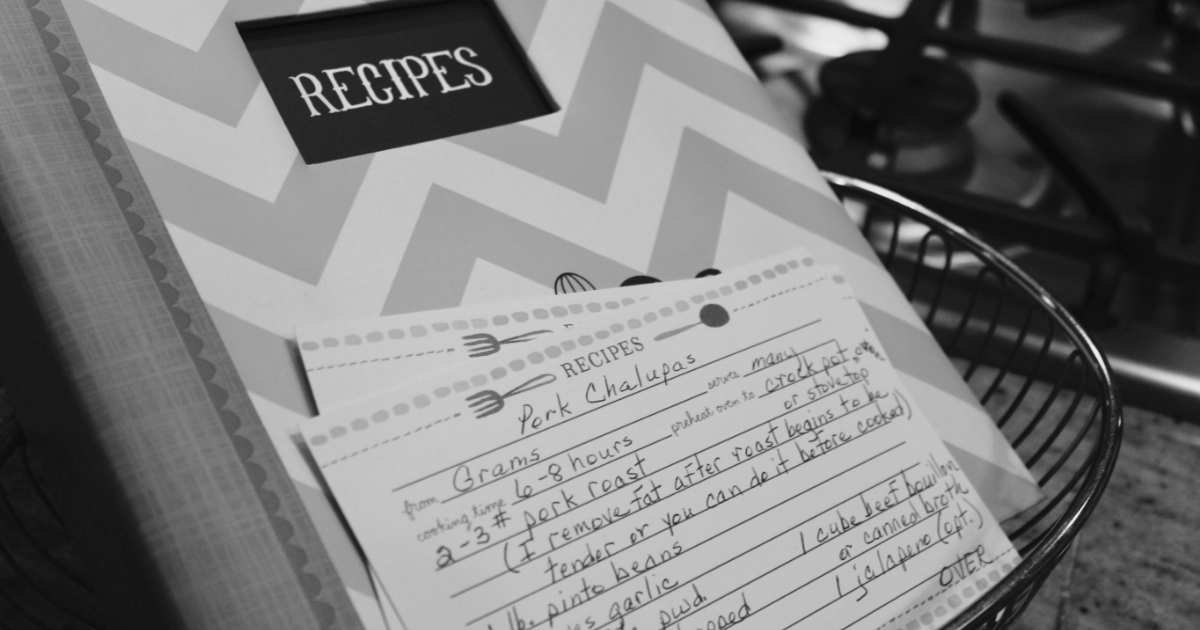 RECIPES
RECIPES
Pork Chalupas
from Grams serves many
cooking time 6-8 hours preheat oven to crock pot, oven,
or stovetop
2-3# pork roast
(I remove fat after roast begins to be
tender or you can do it before cooked)
lb. pinto beans
garlic 1 cube beef bouillon
pwd. or canned broth
1 jalapeno (opt.)
OVER